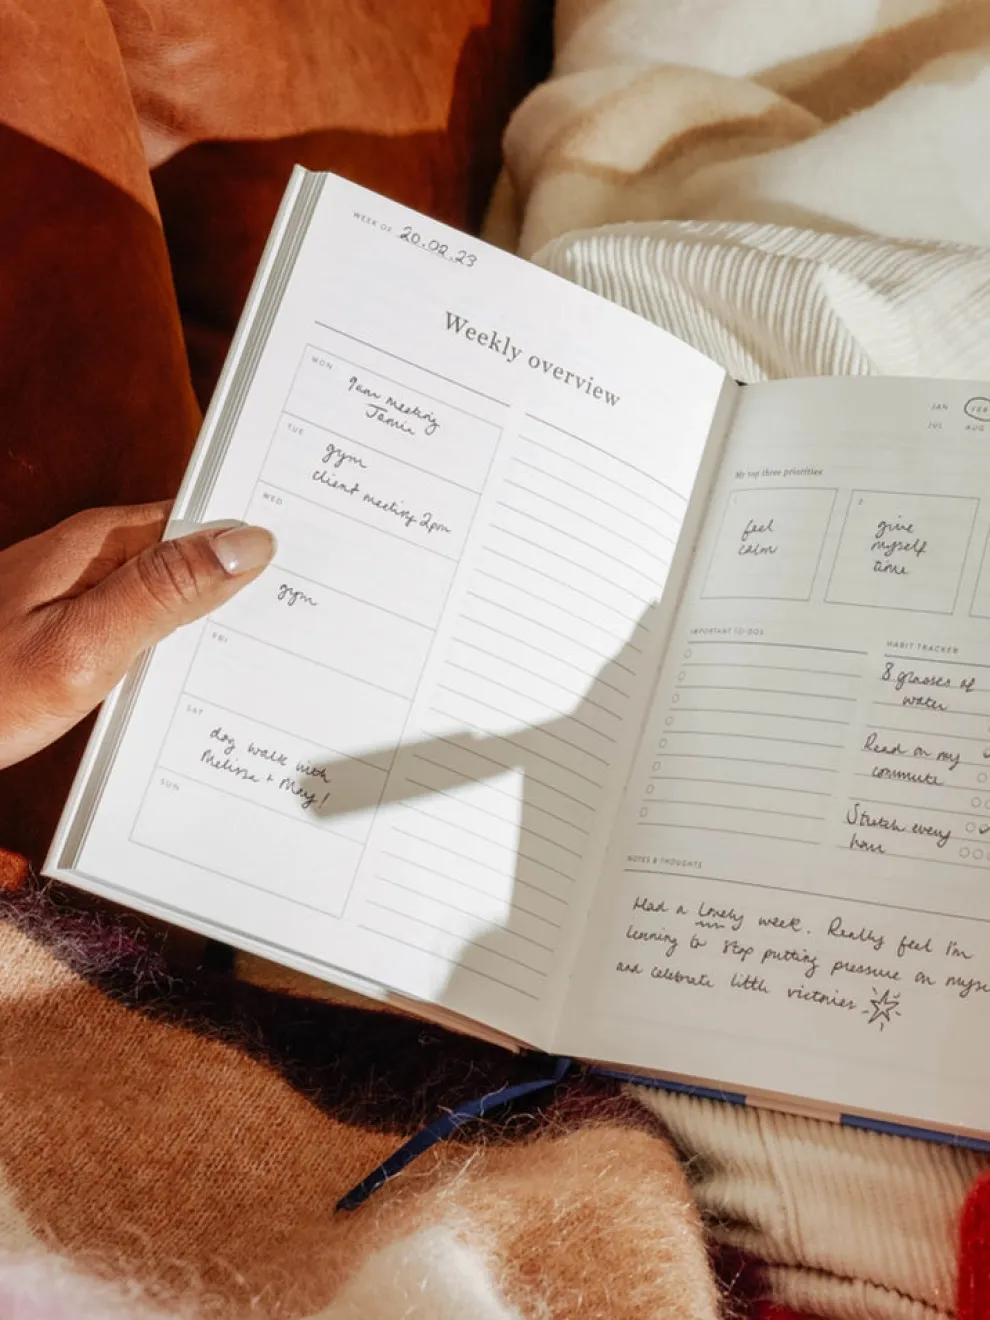 WEEK OF 20.02.23
Weekly overview
MON
9am meeting
Jamie
TUE
gym
client meeting 2pm
WED
gym
FRI
SAT
dog walk with
Melissa + May!
SUN
JAN
JUL AUG
My top three priorities
1
feel
calm
2
give
myself
time
IMPORTANT TO-DOS
HABIT TRACKER
8 glasses of
water
Read on my
commute
Stretch every
hour
NOTES & THOUGHTS
Had a lovely week. Really feel I'm
learning to stop putting pressure on
and celebrate little victories